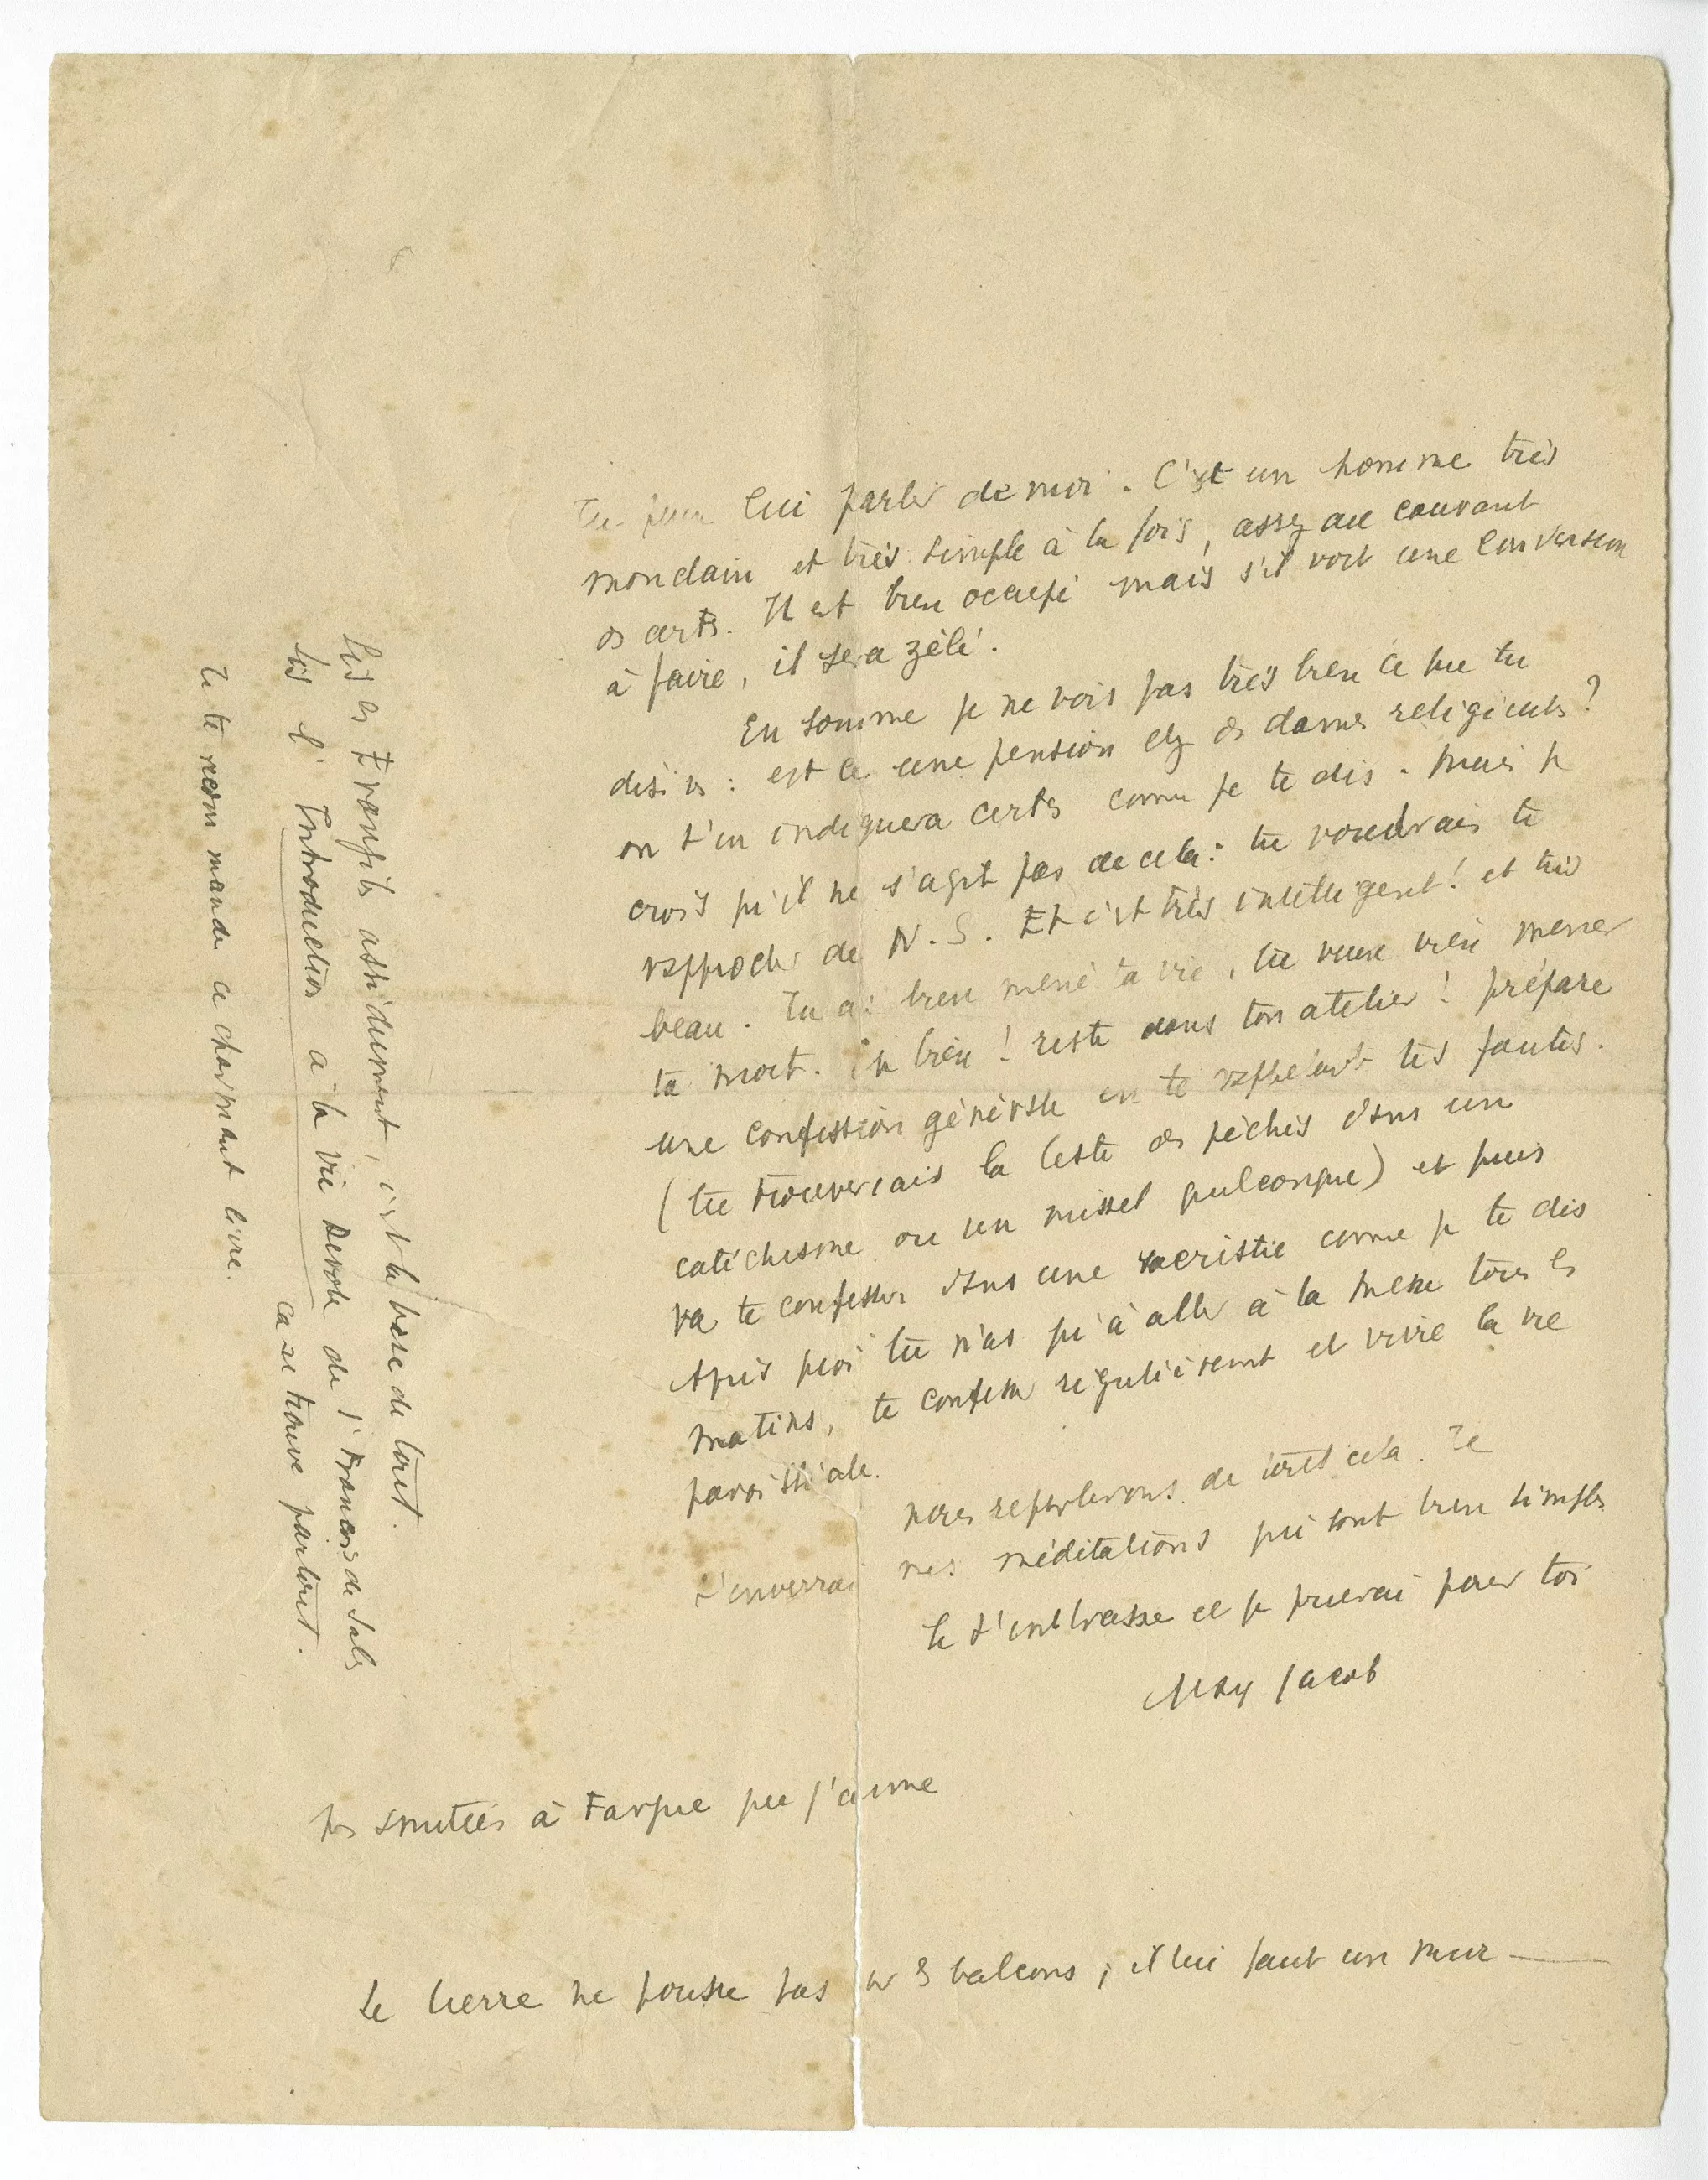 Tu peux lui parler de moi. C'est un homme très
mondain et très simple à la fois, assez au courant
ds arts. Il est bien occupé mais s'il voit une conversion
à faire, il sera zélé.
En somme je ne vois pas très bien ce que tu
désires : est ce une pension chez ds dames religieuses ?
on t'en indiquera certes comme je te dis. Mais je
crois qu'il ne s'agit pas de cela : tu voudrais te
rapprocher de N. S. Et c'est très intelligent ! et très
beau. Tu as bien mené ta vie, tu veux bien mener
ta mort. Eh bien ! reste dans ton atelier ! prépare
une confession générale en te rappelant tes fautes.
(tu trouverais la liste ds péchés dans un
catéchisme ou un missel quelconque) et puis
va te confesser dans une sacristie comme je te dis
Après quoi tu n'as qu'à aller à la messe tous ls
matins, te confesser régulièrement et vivre la vie
paroissiale.
nous reparlerons de tout cela. Je
t'enverrai mes méditations qui sont bien simples
Je t'embrasse et je prierai pour toi
Max Jacob
amitiés à Fargue que j'aime
Le lierre ne pousse pas sur ls balcons ; il lui faut un mur —
Lis ls Evangiles assidument, c'est la base de tout.
Lis l'Introduction à la vie Dévote de St François de Sales
ça se trouve partout.
Je te recommande ce charmant livre.